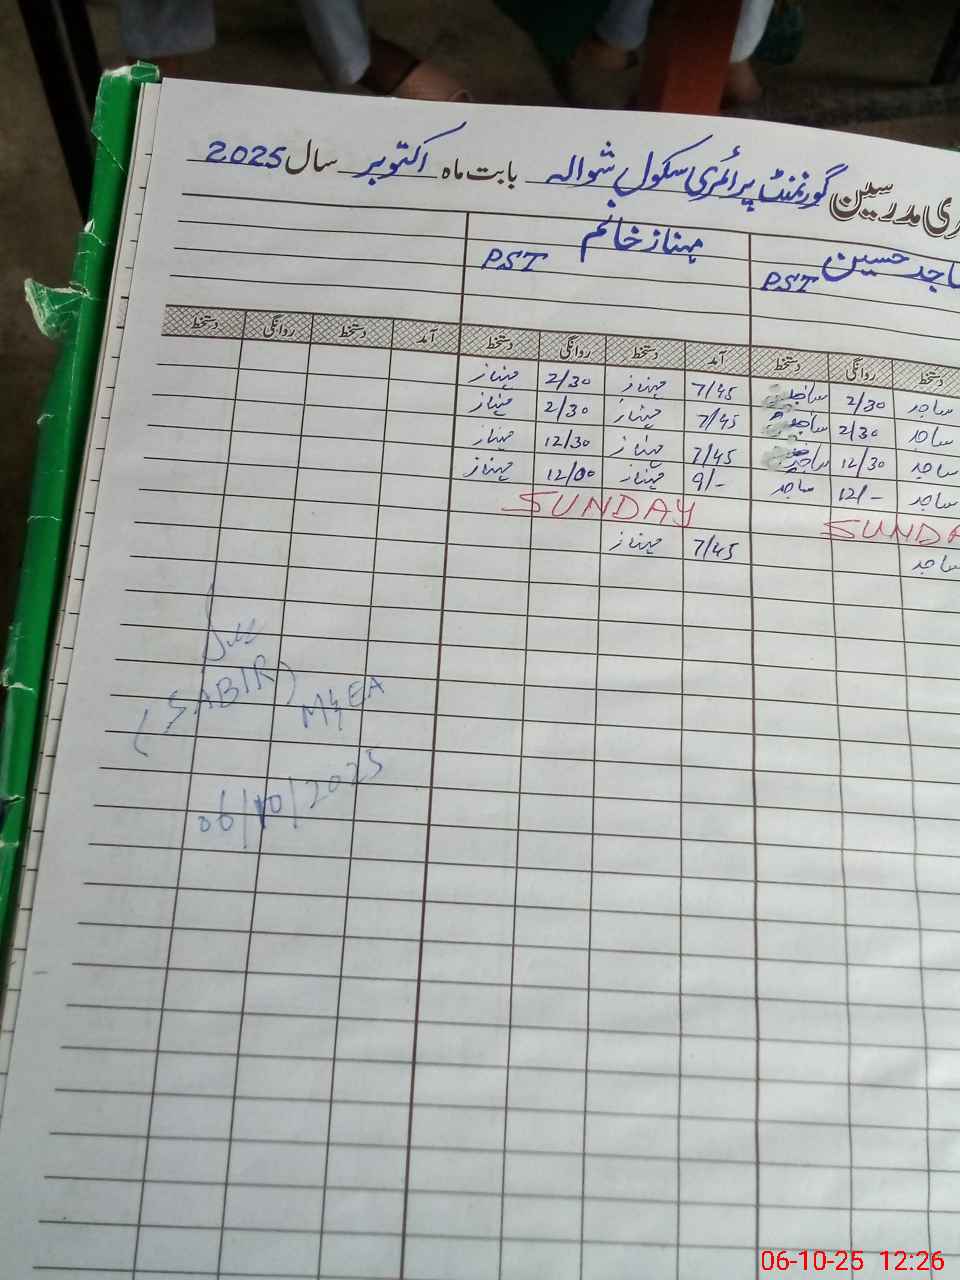 ری مدرسین گورنمنٹ پرائمری سکول شوالہ بابت ماہ اکتوبر سال 2025
اجد حسین PST مہناز خانم PST
دستخط روانگی دستخط آمد دستخط روانگی دستخط آمد دستخط روانگی دستخط
ساجد 2/30 ساجد 7/45 مہناز 2/30 مہناز
ساجد 2/30 ساجد 7/45 مہناز 2/30 مہناز
ساجد 12/30 ساجد 7/45 مہناز 12/30 مہناز
ساجد 12/- ساجد 9/- مہناز 12/00 مہناز
SUNDA SUNDAY
ساجد 7/45 مہناز
(SABIR)
M&EA
06/10/2025
06-10-25 12:26